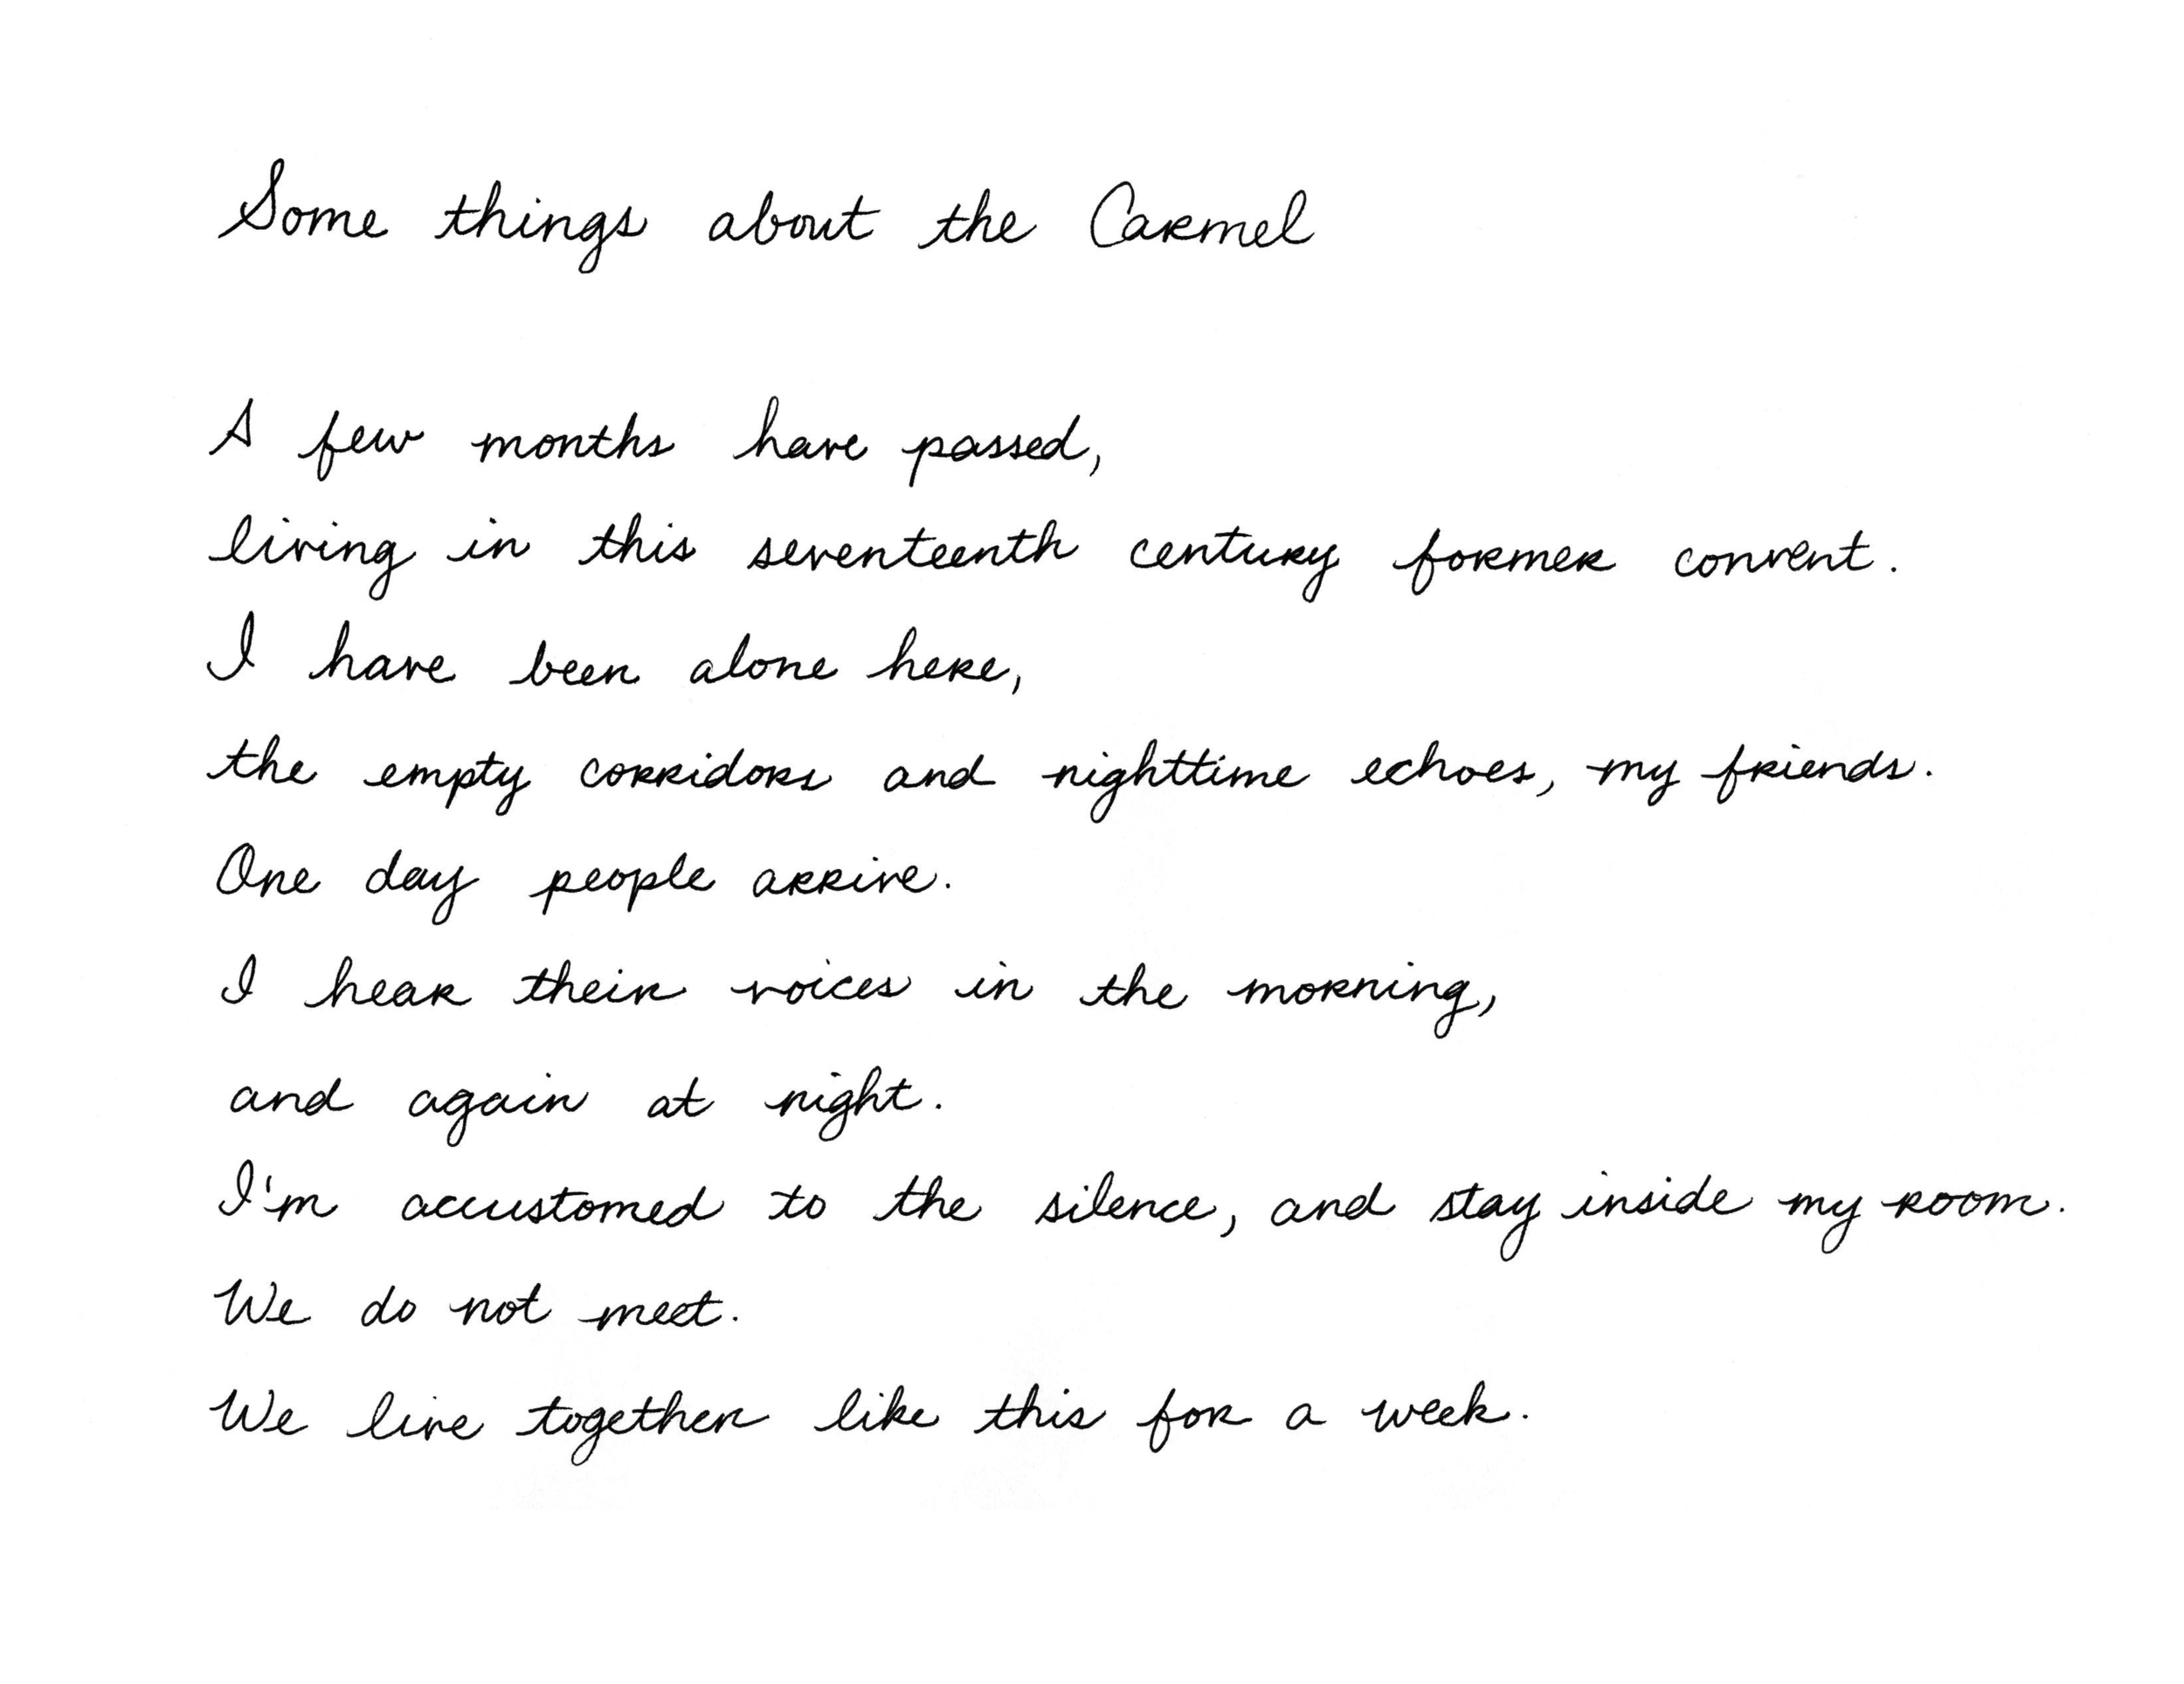 Some things about the Carmel
A few months have passed,
living in this seventeenth century former convent.
I have been alone here,
the empty corridors and nighttime echoes, my friends.
One day people arrive.
I hear their voices in the morning,
and again at night.
I'm accustomed to the silence, and stay inside my room.
We do not meet.
We live together like this for a week.